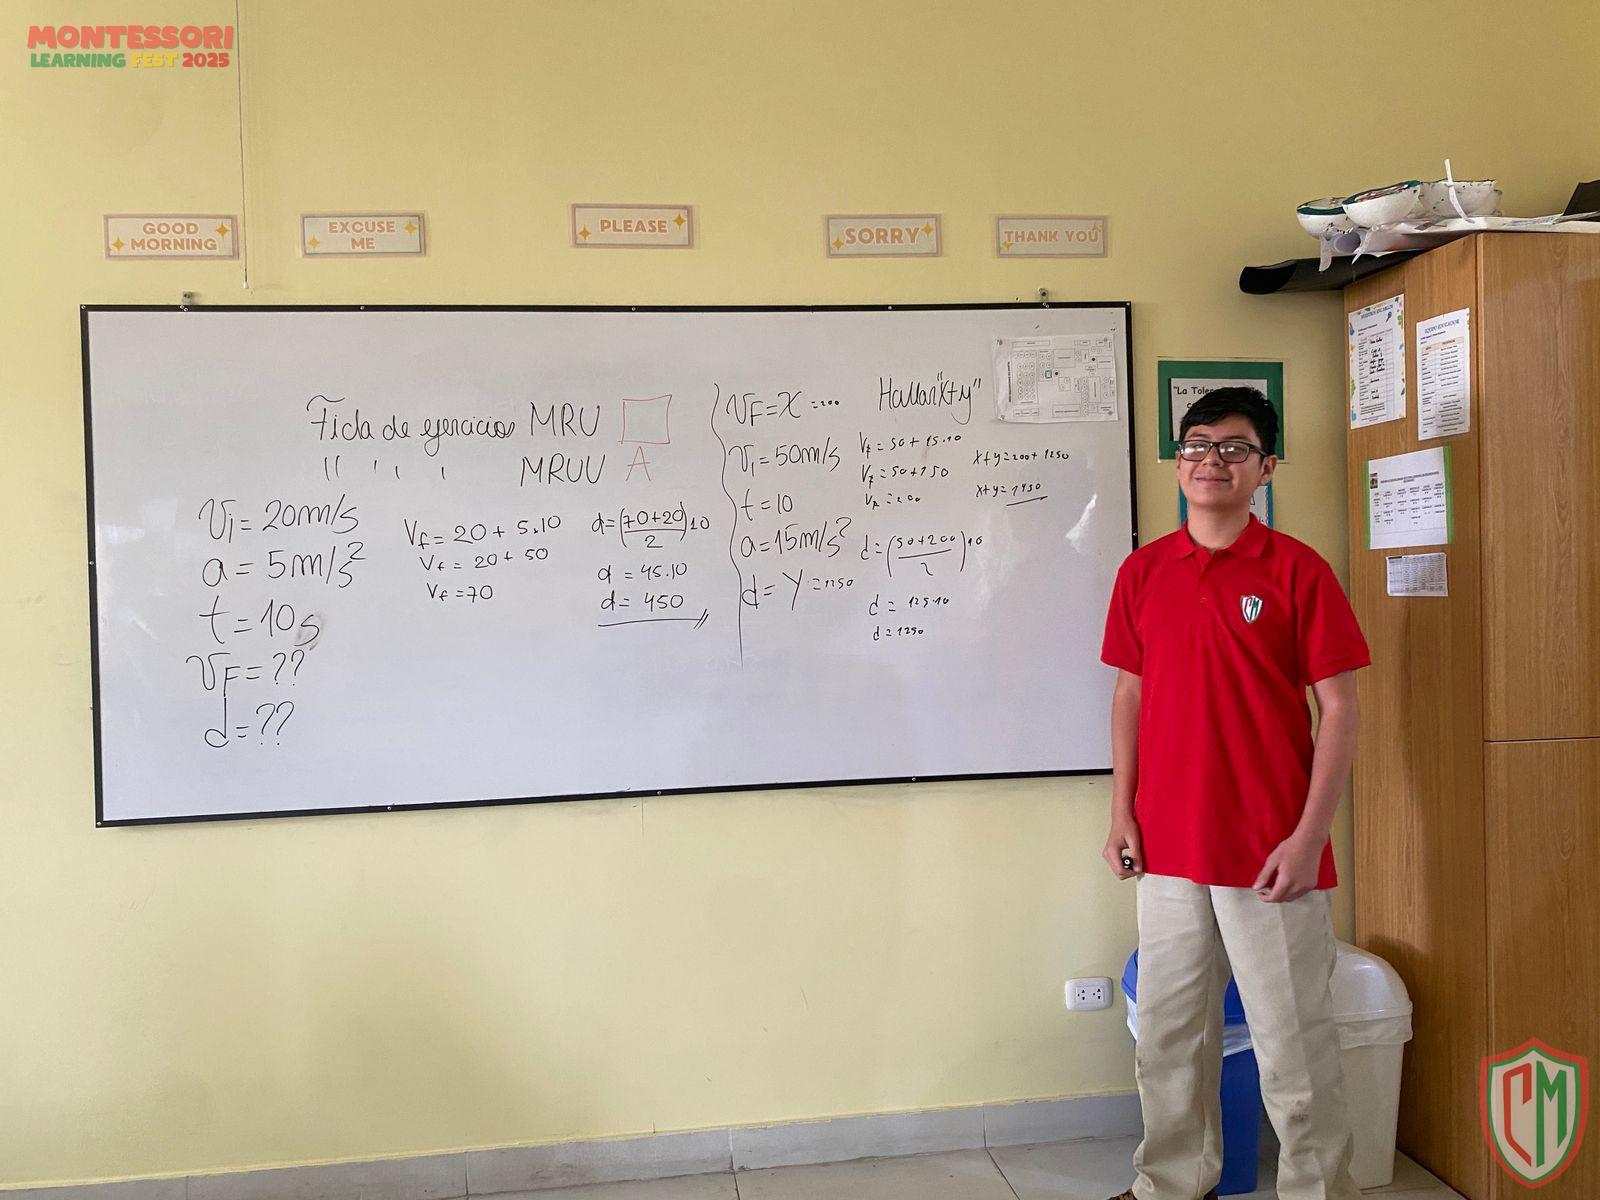 MONTESSORI
LEARNING FEST 2025
GOOD MORNING
EXCUSE ME
PLEASE
SORRY
THANK YOU
Ficla de ejercicios MRU
" ' ' ' MRUU A
Vi = 20m/s
a = 5m/s²
t = 10s
VF = ??
d = ??
Vf = 20 + 5.10
Vf = 20 + 50
Vf = 70
d = (70+20/2)10
d = 45.10
d = 450
VF = X = 200
Vi = 50m/s
t = 10
a = 15m/s²
d = Y = 1250
Hallar "X+y"
Vf = 50 + 15.10
Vf = 50 + 150
Vf = 200
d = (50+200/2)10
d = 125.10
d = 1250
x+y = 200 + 1250
x+y = 1450
"La Toler
EQUIPO EDUCADOR
CM
CM